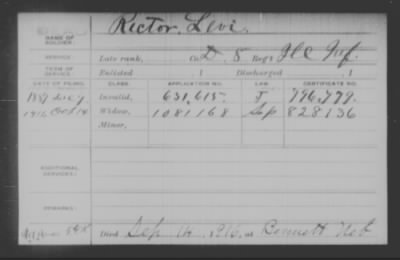 NAME OF SOLDIER: Rector, Levi.
SERVICE: Late rank, Co. D, 8 Reg't Ill Inf.
TERM OF SERVICE: Enlisted , 1 Discharged , 1
DATE OF FILING. CLASS. APPLICATION NO. LAW. CERTIFICATE NO.
1887 Invalid, 631,615. J 796,779.
1916 Oct 14 Widow, 1081168 Sep 828136
Minor,
ADDITIONAL SERVICES:
REMARKS:
Died Sep 14, 1916, at Bennett Neb